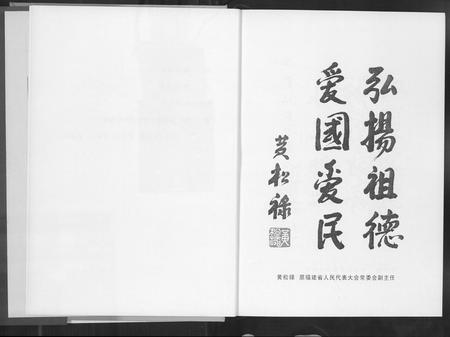 弘揚祖德
愛國愛民
黄松禄
黄松禄 原福建省人民代表大会常委会副主任